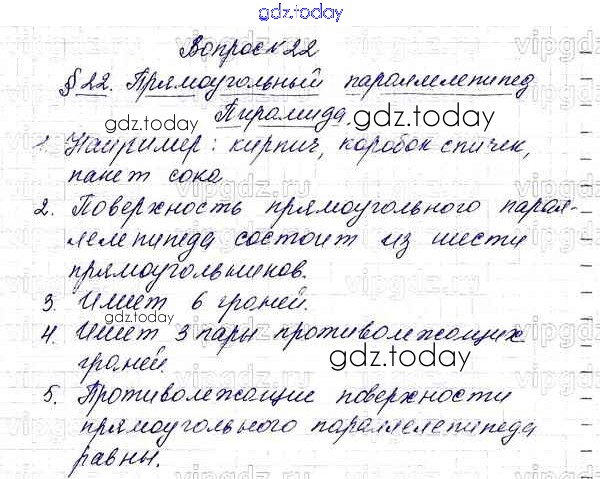 gdz.today
Вопрос 22
§22. Прямоугольный параллелепипед
Пирамида.
gdz.today
1. Например: кирпич, коробок спичек,
пакет сока
2. Поверхность прямоугольного парал-
лелепипеда состоит из шести
прямоугольников.
3. Имеет 6 граней.
4. Имеет 3 пары противолежащих
граней.
5. Противолежащие поверхности
прямоугольного параллелепипеда
равны.
gdz.today
gdz.today
vipgdz.ru